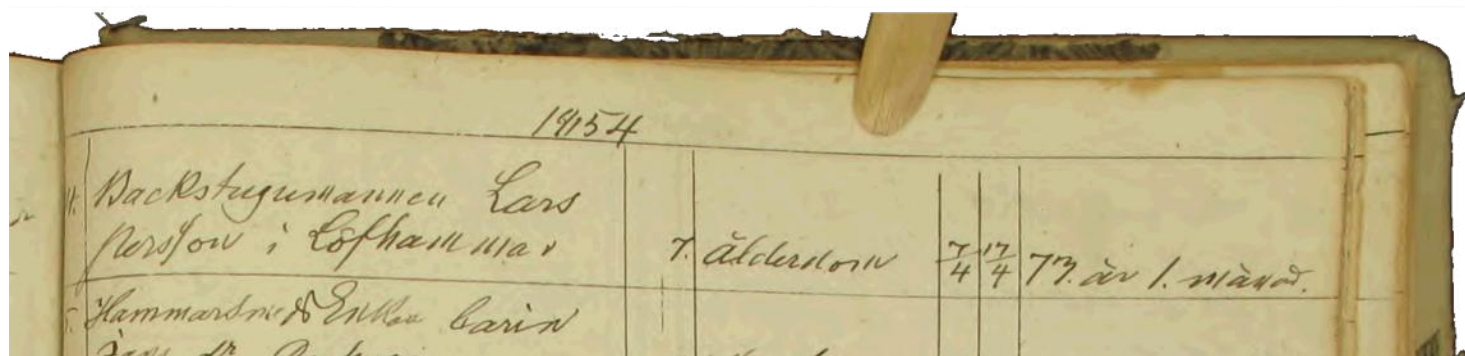 1854
11. Backstugumannen Lars
Persson i Löfhammar 7. ålderdom 7/4 17/4 77. år 1. månad.
5. Hammarsmeds Enkan Carin